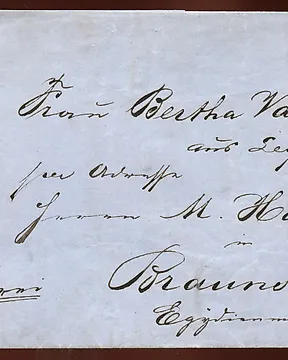 Frau Bertha Va
aus Le
per Adresse
Herrn M. Ha
in
Brauns
frei
Egydienm